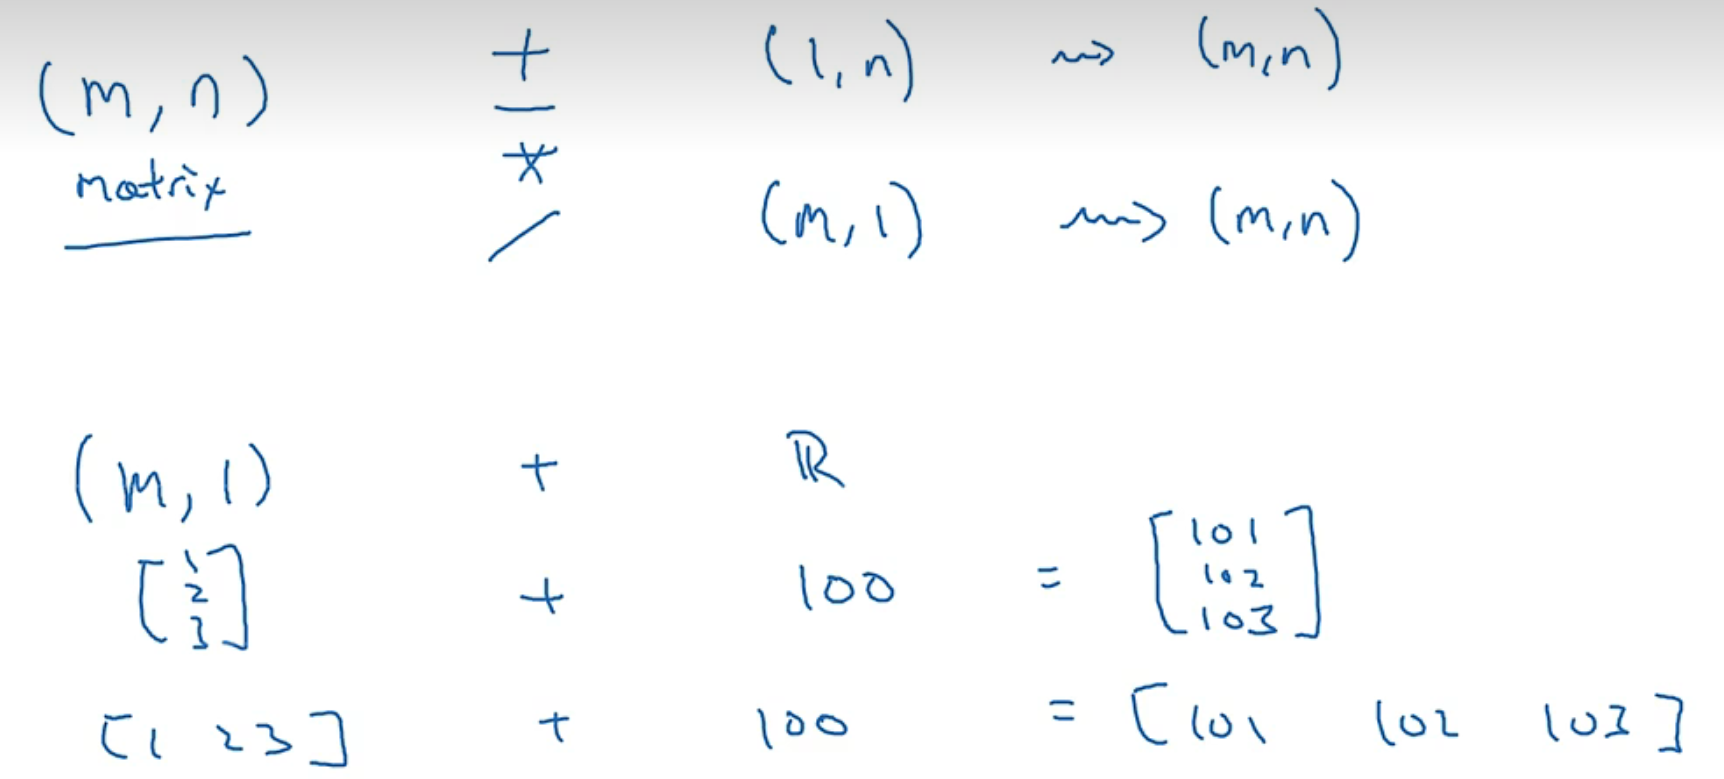 (m, n) + (1, n) ⇝ (m, n)
matrix − *
/ (m, 1) ⇝ (m, n)
(m, 1) + ℝ
[1 2 3] + 100 = [101 102 103]
[1 2 3] + 100 = [101 102 103]